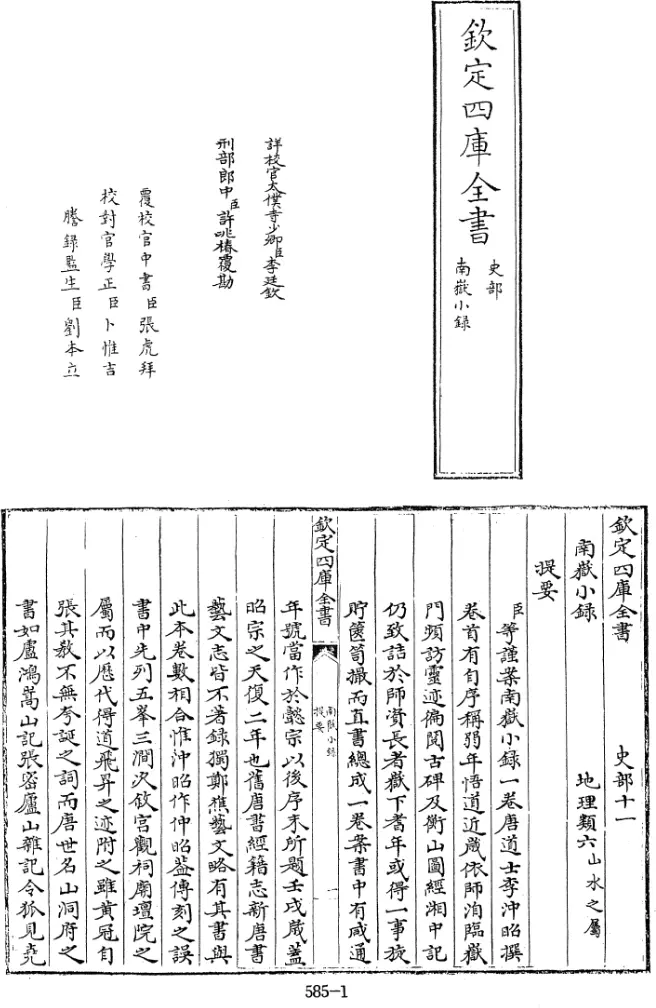 欽定四庫全書
史部
南嶽小録
詳校官太僕寺少卿臣李廷欽
刑部郎中臣許兆椿覆勘
覆校官中書臣張虎拜
校對官學正臣卜惟吉
謄録監生臣劉本立
欽定四庫全書 史部十一
南嶽小録 地理類六山水之屬
提要
臣等謹案南嶽小録一卷唐道士李沖昭撰
卷首有自序稱弱年悟道近歲依師洎臨嶽
門頻訪靈迹徧閲古碑及衡山圖經湘中記
仍致詰於師資長者嶽下耆年或得一事旋
貯篋笥撮而直書總成一卷案書中有咸通
欽定四庫全書
南嶽小録
提要
一
年號當作於懿宗以後序末所題壬戌歲蓋
昭宗之天復二年也舊唐書經籍志新唐書
藝文志皆不著録獨鄭樵藝文略有其書與
此本卷數相合惟沖昭作仲昭蓋傳刻之誤
書中先列五峯三澗次敘宫觀祠廟壇院之
屬而以歷代得道飛昇之迹附之雖黄冠自
張其教不無夸誕之詞而唐世名山洞府之
書如盧鴻嵩山記張密廬山雜記令狐見堯
585-1